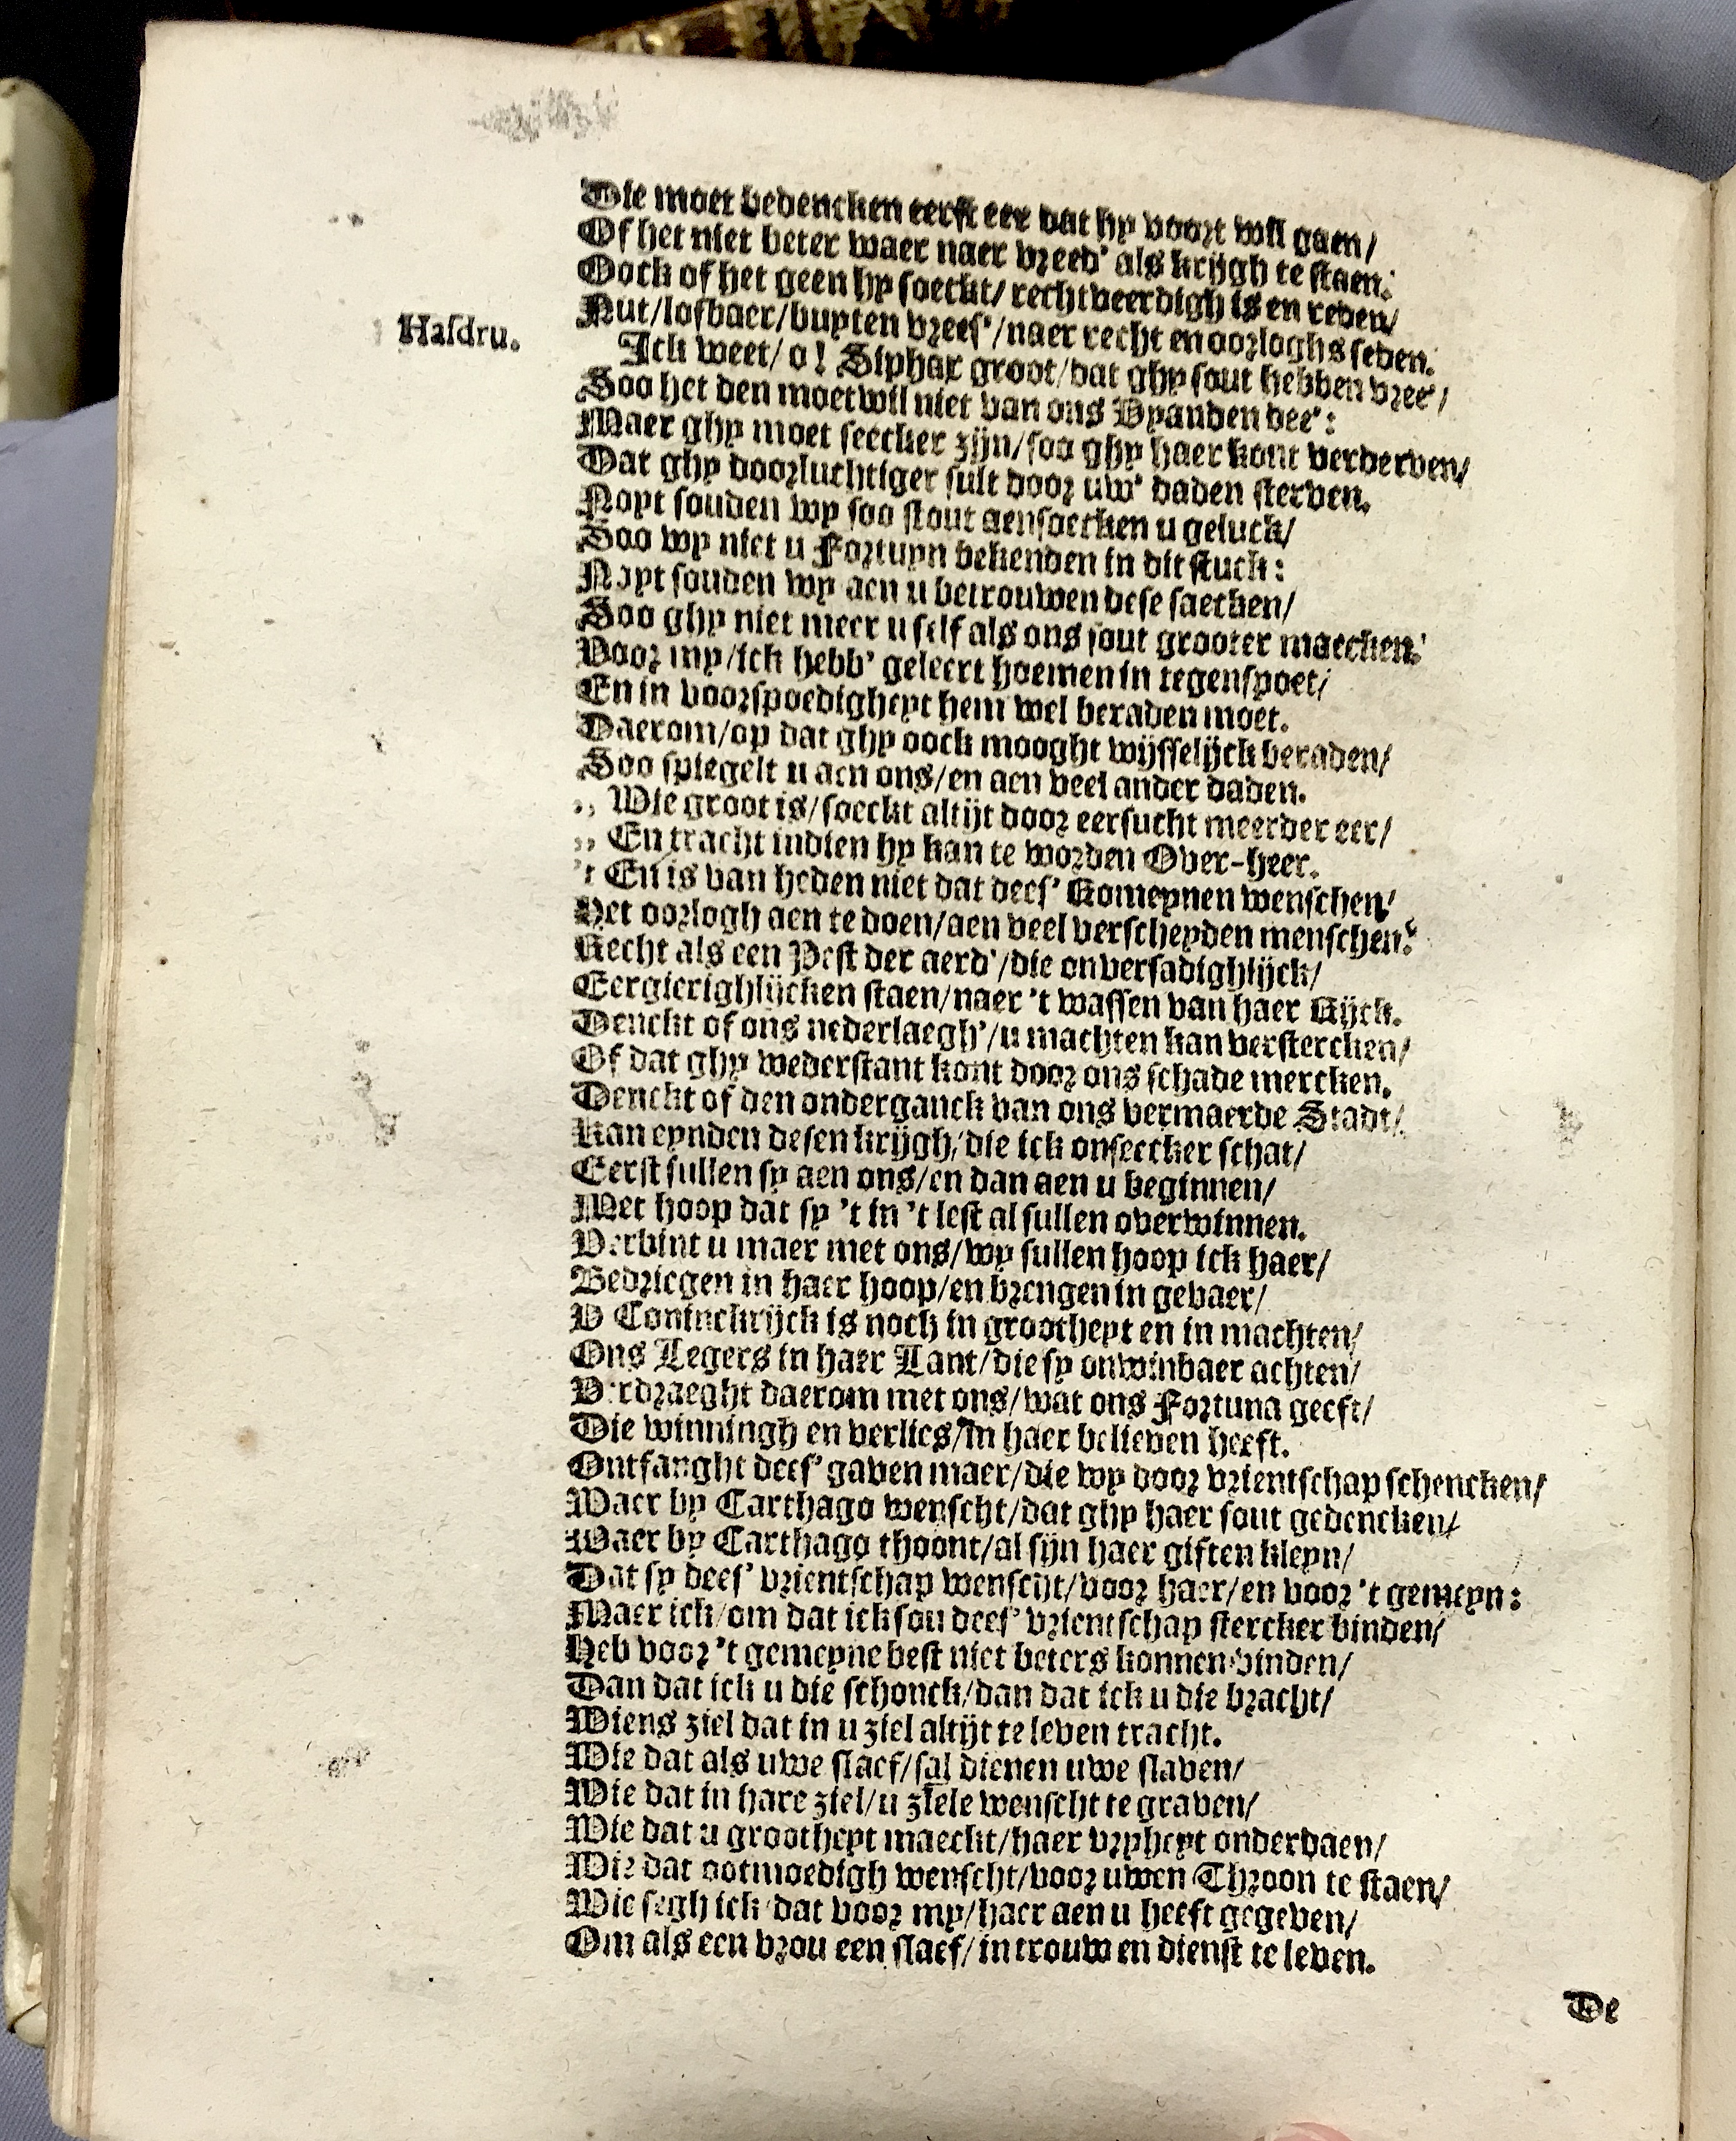 Die moet bedencken eerst eer dat hy voort wil gaen/
Of het niet beter waer naer vreed' als krijgh te staen:
Oock of het geen hy soeckt/ rechtveerdigh is en reden/
Nut/lofbaer/buyten vrees'/naer recht en oorloghs seden.
Hasdru. Ick weet/ o! Siphax groot/dat ghy sout hebben vree'/
Soo het den moetwil niet van ons Vyanden dee':
Maer ghy moet seecker zijn/soo ghy haer kont verderven/
Dat ghy doorluchtiger sult door uw' daden sterven.
Noyt souden wy soo stout aensoecken u geluck/
Soo wy niet u Fortuyn bekenden in dit stuck:
Noyt souden wy aen u betrouwen dese saecken/
Soo ghy niet meer u self als ons sout grooter maecken.
Voor my/ick hebb' geleert hoemen in tegenspoet/
En in voorspoedigheyt hem wel beraden moet.
Daerom/op dat ghy oock mooght wijsselijck beraden/
Soo spiegelt u aen ons/en aen veel ander daden.
,, Wie groot is/soeckt altijt door eersucht meerder eer/
,, En tracht indien hy kan te worden Over-heer.
't En is van heden niet dat dees' Romeynen wenschen/
Het oorlogh aen te doen/aen veel verscheyden menschen.
Recht als een Pest der aerd'/die onversadighlijck/
Eergierighlijcken staen/naer 't wassen van haer Rijck.
Denckt of ons nederlaegh'/u machten kan verstercken/
Of dat ghy wederstant kont door ons schade mercken.
Denckt of den onderganck van ons vermaerde Stadt/
Kan eynden desen krijgh/die ick onseecker schat/
Eerst sullen sy aen ons/en dan aen u beginnen/
Met hoop dat sy 't in 't lest al sullen overwinnen.
Verbint u maer met ons/wy sullen hoop ick haer/
Bedriegen in haer hoop/en brengen in gevaer/
V Coninckrijck is noch in grootheyt en in machten/
Ons Legers in haer Lant/die sy onwinbaer achten/
Verdraeght daerom met ons/wat ons Fortuna geeft/
Die winningh en verlies/in haer believen heeft.
Ontfanght dees' gaven maer/die wy door vrientschap schencken/
Waer by Carthago wenscht/dat ghy haer sout gedencken/
Waer by Carthago thoont/al sijn haer giften kleyn/
Dat sy dees' vrientschap wenscht/voor haer/en voor 't gemeyn:
Maer ick/om dat ick sou dees' vrientschap stercker binden/
Heb voor 't gemeyne best niet beters konnen vinden/
Dan dat ick u die schonck/dan dat ick u die bracht/
Wiens ziel dat in u ziel altijt te leven tracht.
Wie dat als uwe slaef/sal dienen uwe slaven/
Wie dat in hare ziel/u ziele wenscht te graven/
Wie dat u grootheyt maeckt/haer vryheyt onderdaen/
Wie dat ootmoedigh wenscht/voor uwen Throon te staen/
Wie segh ick/dat voor my/haer aen u heeft gegeven/
Om als een vrou een slaef/in trouw en dienst te leven.
De